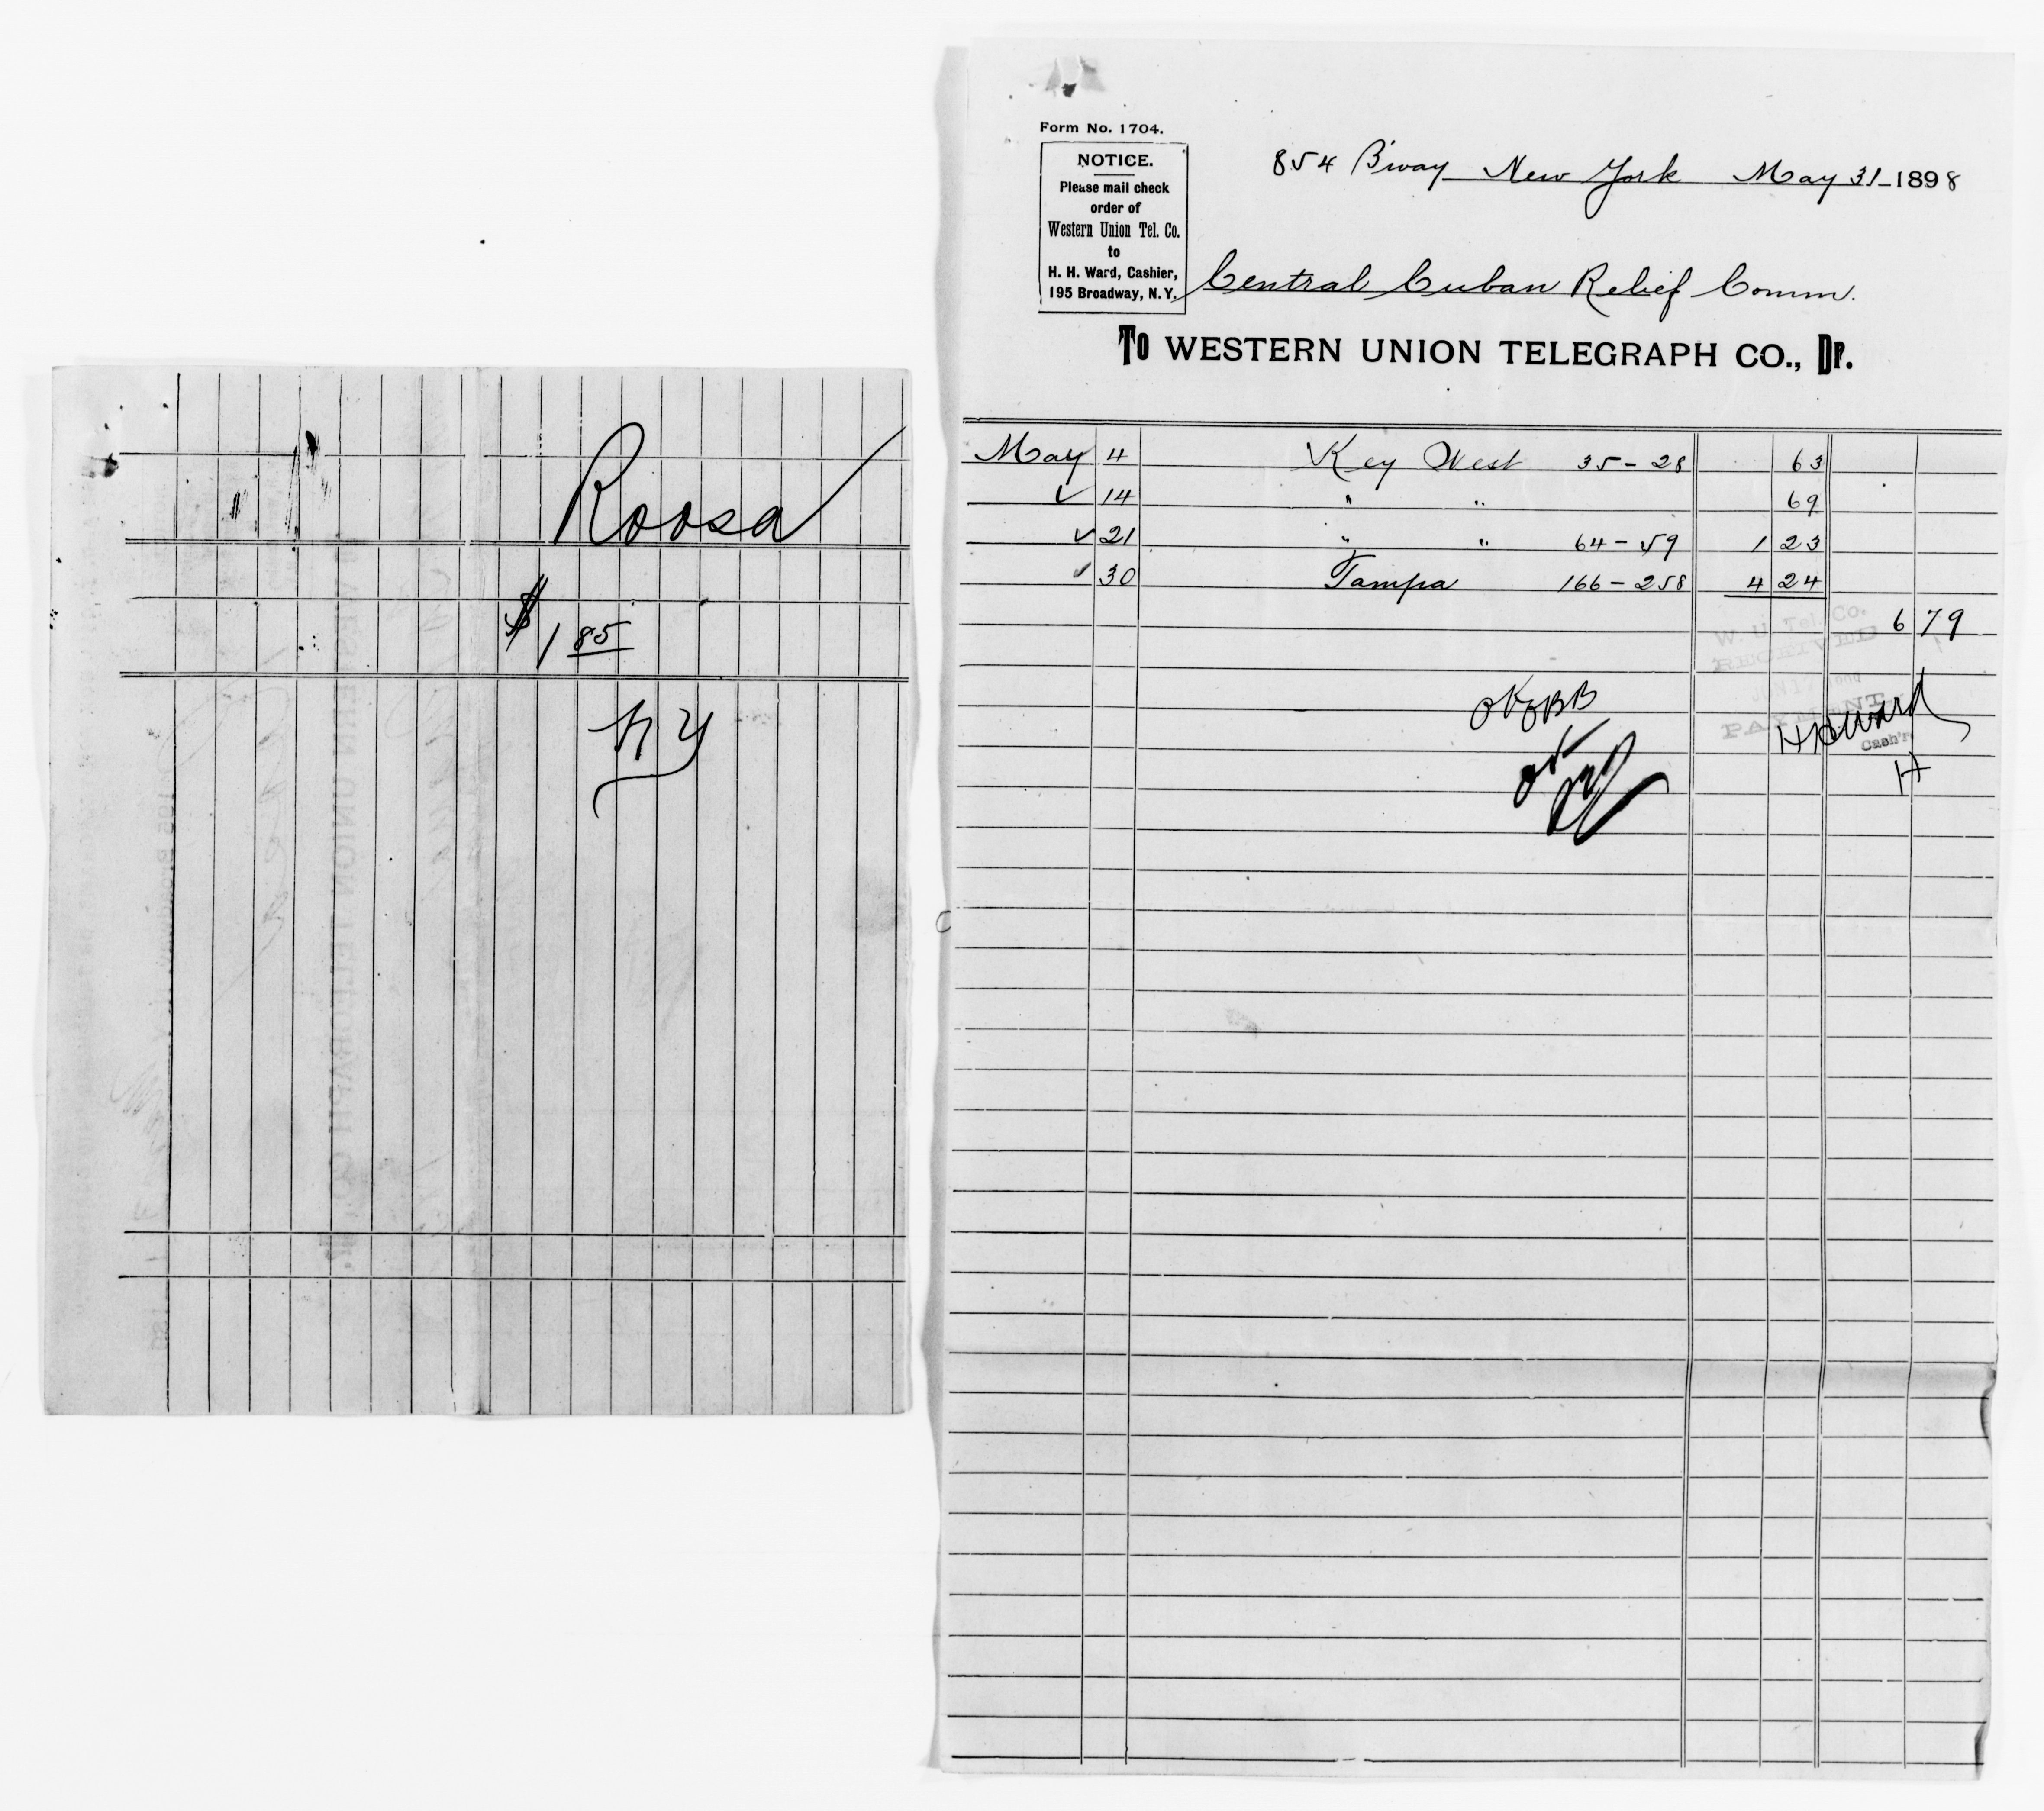 Roosa
$1 85
NY
Form No. 1704.
NOTICE.
Please mail check
order of
Western Union Tel. Co.
to
H. H. Ward, Cashier,
195 Broadway, N. Y.
854 B'way New York May 31 1898
Central Cuban Relief Comm.
To WESTERN UNION TELEGRAPH CO., Dr.
May 4 Key West 35 - 28 63
✓ 14 " " 69
✓ 21 " " 64 - 59 1 23
✓ 30 Tampa 166 - 258 4 24
6 79
W. U. Tel. Co.
RECEIVED
JUN 17
PAYMENT
OK BB
HHWard
Cash'r
OK
H